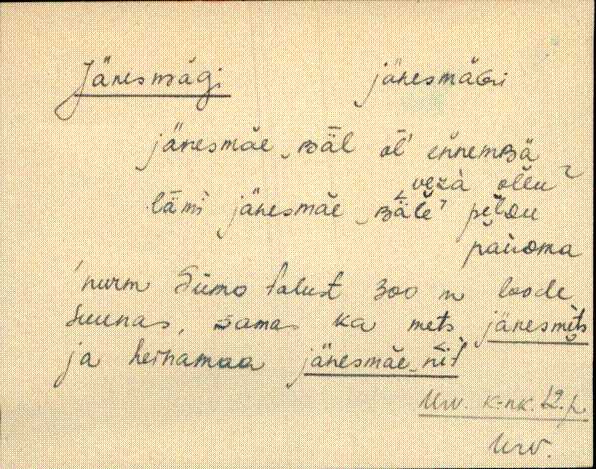 Jänesmägi jänesmäGi
jänesmäe„Bäl õl' ennemBä
veza ollu
lämi jänesmäe„Bäle" peldu
panoma
'nurm Siimo talust 300 m loode
suunas, samas ka mets jänesmets
ja heinamaa jänesmäe„nit
Urv. k-nk. L2. p.
Urv.